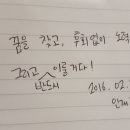 꿈을 갖고, 후회없이 노력
그리고 반드시 이룰거다!
2016. 02.